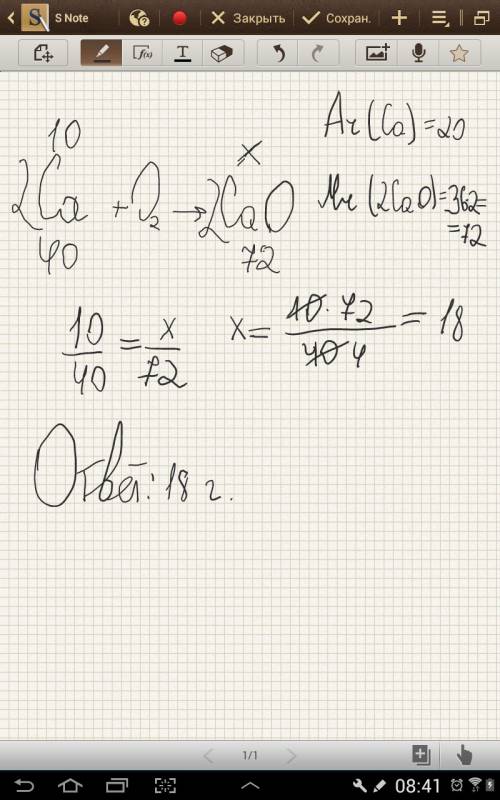 S Note
Закрыть
Сохран.
f(x)
T
10 x Ar(Ca)=20
2Ca + O₂ → 2CaO Mr(2CaO)=36·2=
40 72 =72
10/40 = x/72 x= 10·72/40 4 = 18
Ответ: 18 г.
1/1
08:41